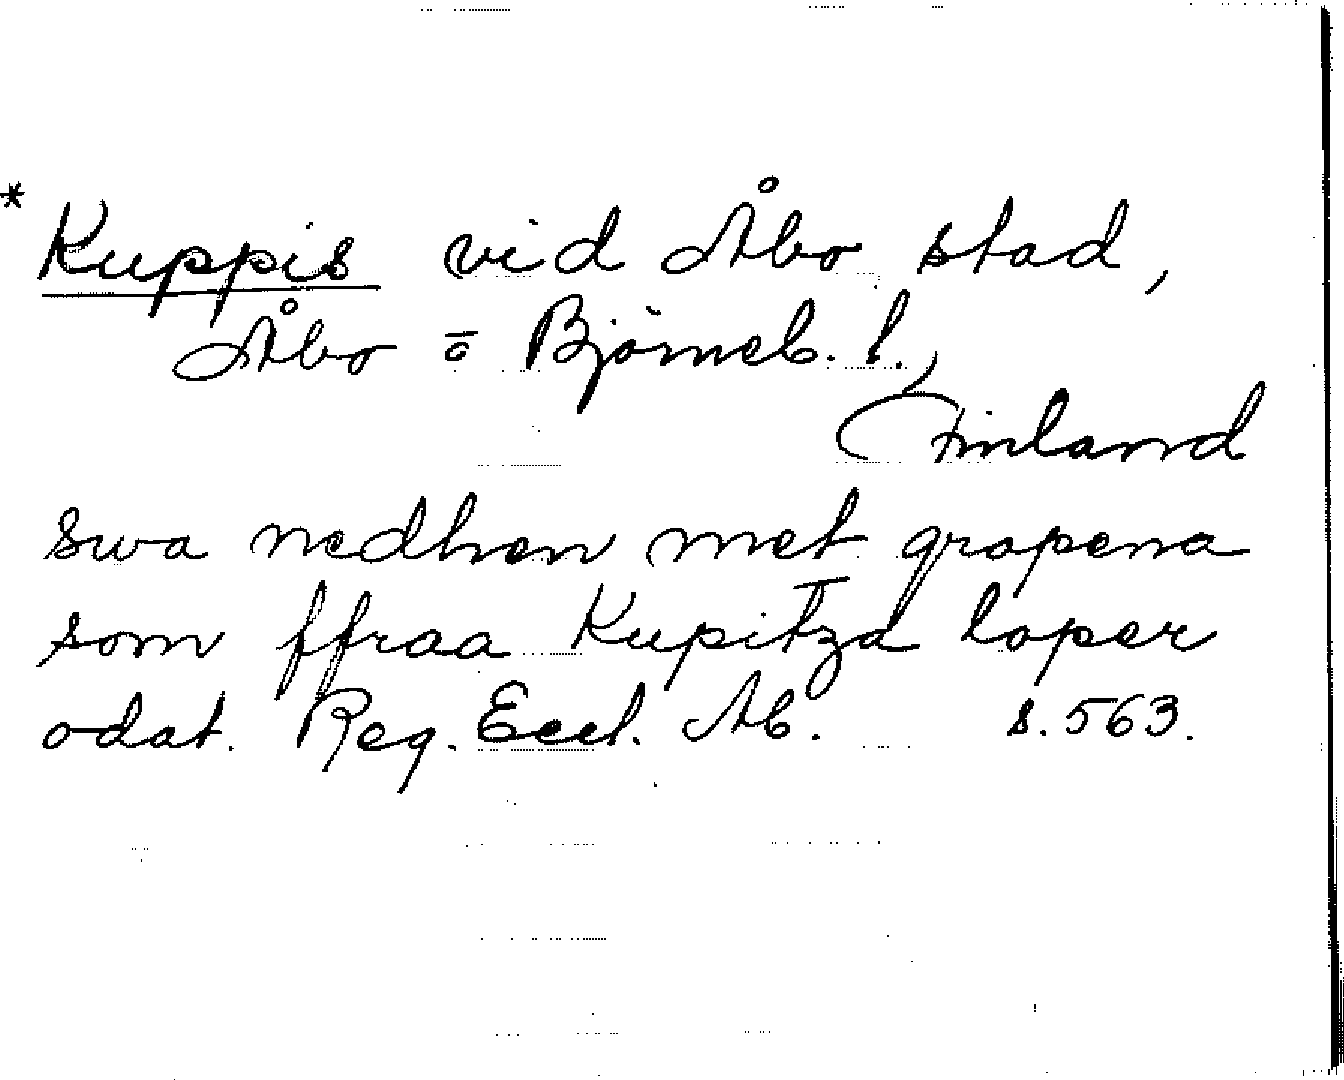 * Kuppis vid Åbo stad,
Åbo o Björneb. l.,
Finland
swa nedhen met gropena
som ffraa Kupitza loper
odat. Reg. Eccl. Ab. s. 563.